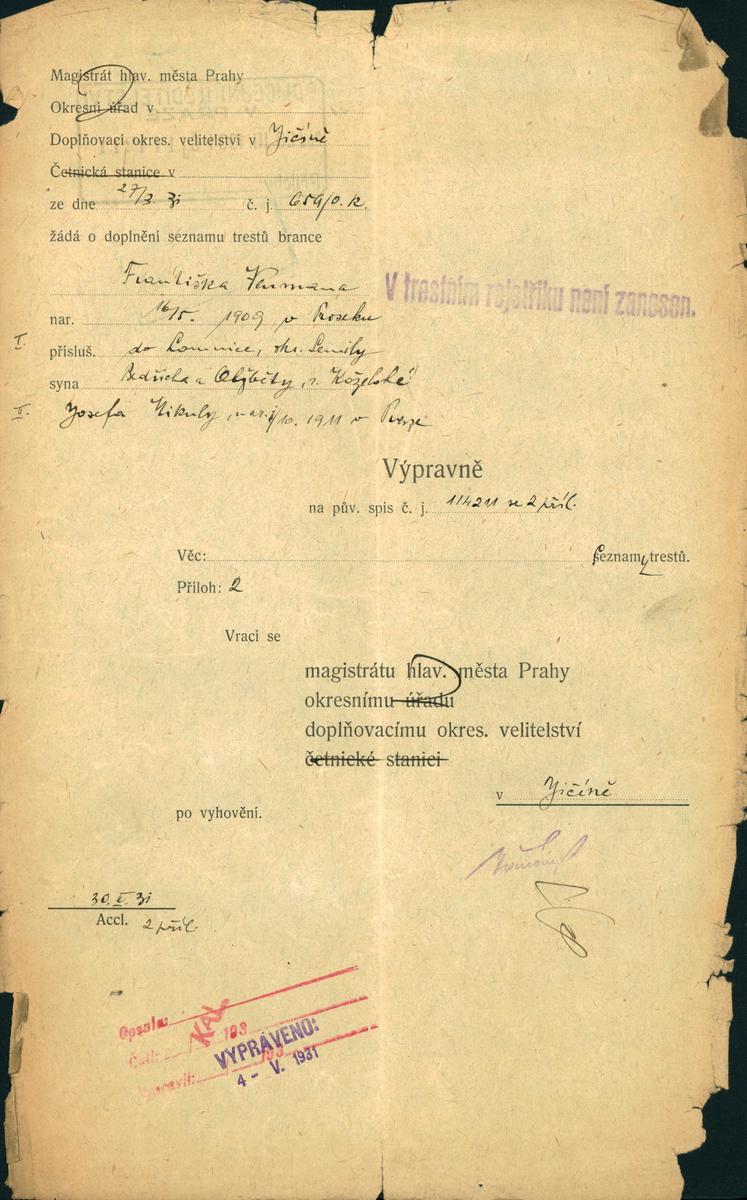 Magistrát hlav. města Prahy
Okresní úřad v
Doplňovací okres. velitelství v Jičíně
Četnická stanice v
ze dne 27/3. 31 č. j. 659/0.k.
žádá o doplnění seznamu trestů brance
Františka Neumana
nar. 16/5. 1909 v Proseku
I. přísluš. do Lomnice, okr. Semily
syna Bedřicha a Alžběty, r. Koželské
II. Josefa Mikuly, nar. 10. 1911 v Praze
V trestním rejstříku není zanesen.
Výpravně
na pův. spis č. j. 114211 se 2 příl.
Věc: Seznamy trestů.
Příloh: 2
Vrací se
magistrátu hlav. města Prahy
okresnímu úřadu
doplňovacímu okres. velitelství
četnické stanici
v Jičíně
po vyhovění.
30. V. 31
Accl. 2 příl.
Opsala:
KAL
Četl: 193
Vypravil: 193
VYPRAVENO:
4 - V. 1931